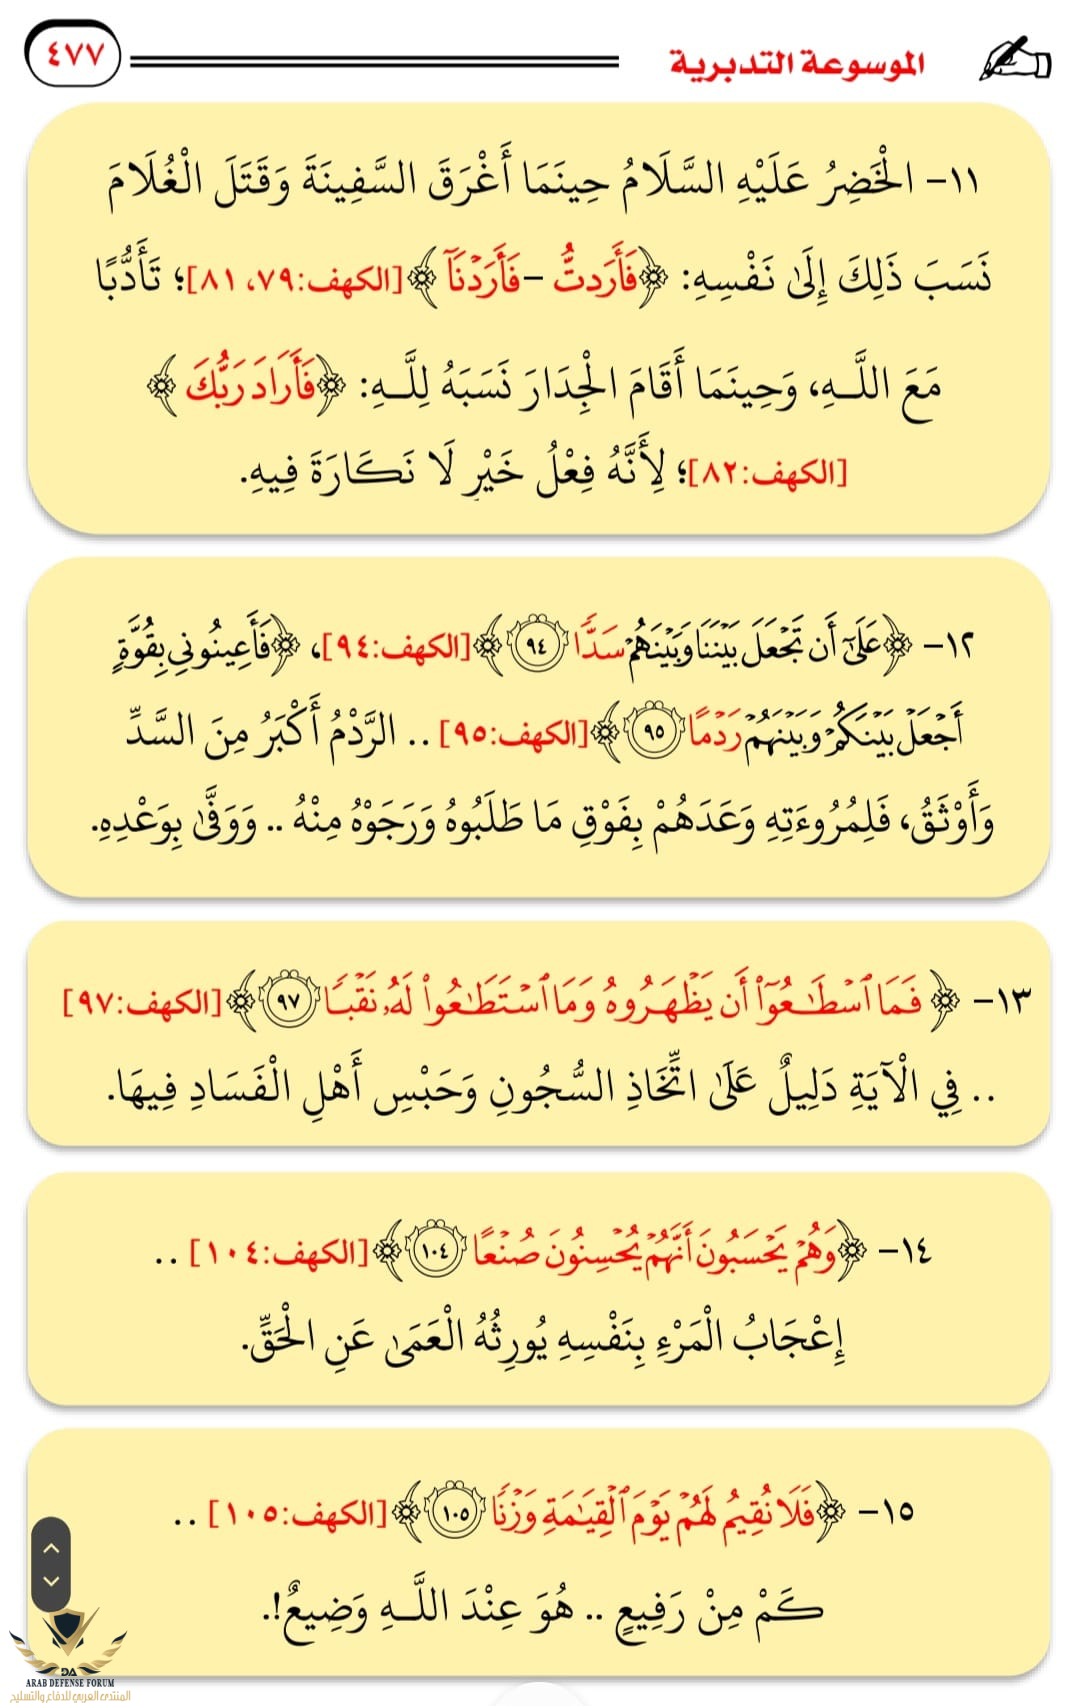 الموسوعة التدبرية
٤٧٧
١١- الْخَضِرُ عَلَيْهِ السَّلَامُ حِينَمَا أَغْرَقَ السَّفِينَةَ وَقَتَلَ الْغُلَامَ
نَسَبَ ذَلِكَ إِلَىٰ نَفْسِهِ: ﴿فَأَرَدتُّ – فَأَرَدْنَآ﴾ [الكهف:٧٩، ٨١]؛ تَأَدُّبًا
مَعَ اللَّـهِ، وَحِينَمَا أَقَامَ الْجِدَارَ نَسَبَهُ لِلَّـهِ: ﴿فَأَرَادَ رَبُّكَ﴾
[الكهف:٨٢]؛ لِأَنَّهُ فِعْلُ خَيْرٍ لَا نَكَارَةَ فِيهِ.
١٢- ﴿عَلَىٰٓ أَن تَجْعَلَ بَيْنَنَا وَبَيْنَهُمْ سَدًّا ٩٤﴾ [الكهف:٩٤]، ﴿فَأَعِينُونِي بِقُوَّةٍ
أَجْعَلْ بَيْنَكُمْ وَبَيْنَهُمْ رَدْمًا ٩٥﴾ [الكهف:٩٥] .. الرَّدْمُ أَكْبَرُ مِنَ السَّدِّ
وَأَوْثَقُ، فَلِمُرُوءَتِهِ وَعَدَهُمْ بِفَوْقِ مَا طَلَبُوهُ وَرَجَوْهُ مِنْهُ .. وَوَفَّىٰ بِوَعْدِهِ.
١٣- ﴿فَمَا ٱسْطَـٰعُوٓا۟ أَن يَظْهَرُوهُ وَمَا ٱسْتَطَـٰعُوا۟ لَهُۥ نَقْبًا ٩٧﴾ [الكهف:٩٧]
.. فِي الْآيَةِ دَلِيلٌ عَلَىٰ اتِّخَاذِ السُّجُونِ وَحَبْسِ أَهْلِ الْفَسَادِ فِيهَا.
١٤- ﴿وَهُمْ يَحْسَبُونَ أَنَّهُمْ يُحْسِنُونَ صُنْعًا ١٠٤﴾ [الكهف:١٠٤] ..
إِعْجَابُ الْمَرْءِ بِنَفْسِهِ يُورِثُهُ الْعَمَىٰ عَنِ الْحَقِّ.
١٥- ﴿فَلَا نُقِيمُ لَهُمْ يَوْمَ ٱلْقِيَـٰمَةِ وَزْنًا ١٠٥﴾ [الكهف:١٠٥] ..
كَمْ مِنْ رَفِيعٍ .. هُوَ عِنْدَ اللَّـهِ وَضِيعٌ!.
DA
ARAB DEFENSE FORUM
المنتدى العربي للدفاع والتسليح